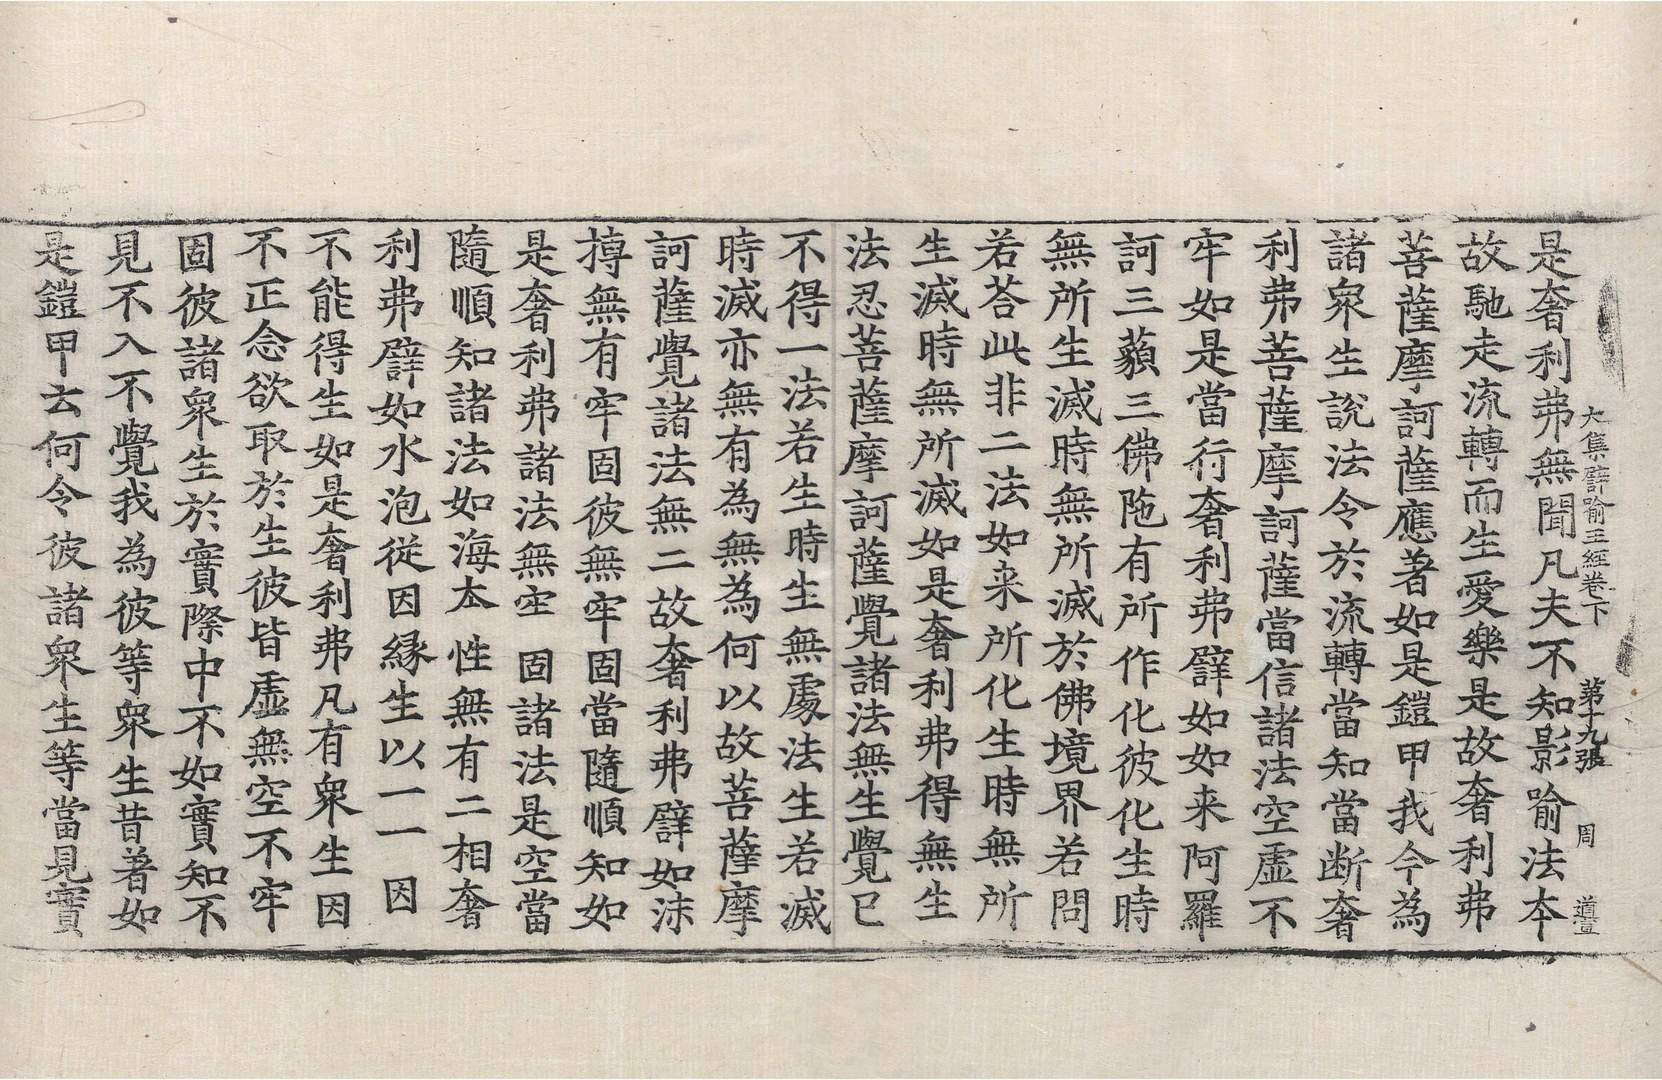 大集譬喻王經卷下 第十九張 周 道豈
是奢利弗無聞凡夫不知影喻法本
故馳走流轉而生愛樂是故奢利弗
菩薩摩訶薩應著如是鎧甲我今為
諸衆生說法令於流轉當知當断奢
利弗菩薩摩訶薩當信諸法空虛不
牢如是當行奢利弗譬如如来阿羅
訶三藐三佛陁有所作化彼化生時
無所生滅時無所滅於佛境界若問
若荅此非二法如来所化生時無所
生滅時無所滅如是奢利弗得無生
法忍菩薩摩訶薩覺諸法無生覺已
不得一法若生時生無處法生若滅
時滅亦無有為無為何以故菩薩摩
訶薩覺諸法無二故奢利弗譬如沫
摶無有牢固彼無牢固當隨順知如
是奢利弗諸法無牢固諸法是空當
隨順知諸法如海本性無有二相奢
利弗譬如水泡從因緣生以一一因
不能得生如是奢利弗凡有衆生因
不正念欲取於生彼皆虛無空不牢
固彼諸衆生於實際中不如實知不
見不入不覺我為彼等衆生昔著如
是鎧甲云何令彼諸衆生等當見實